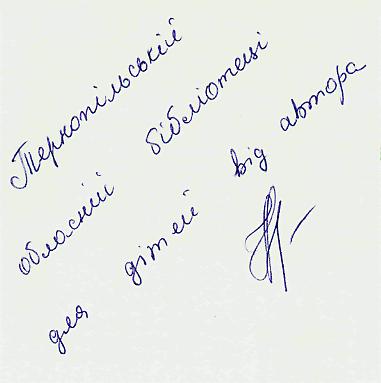 Тернопільській
обласній бібліотеці
для дітей від автора